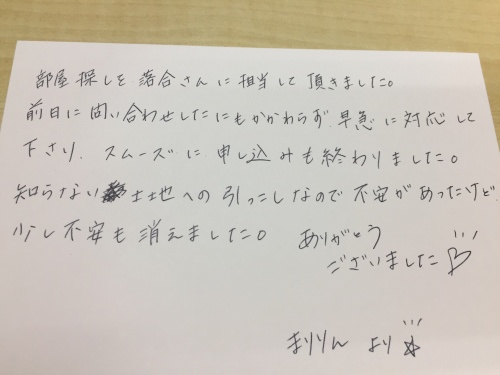 部屋探しを落合さんに担当して頂きました。
前日に問い合わせしたにもかかわらず、早急に対応して
下さり、スムーズに申し込みも終わりました。
知らない土地への引っこしなので不安があったけど
少し不安も消えました。ありがとう
ございました♡
まりりんより☆